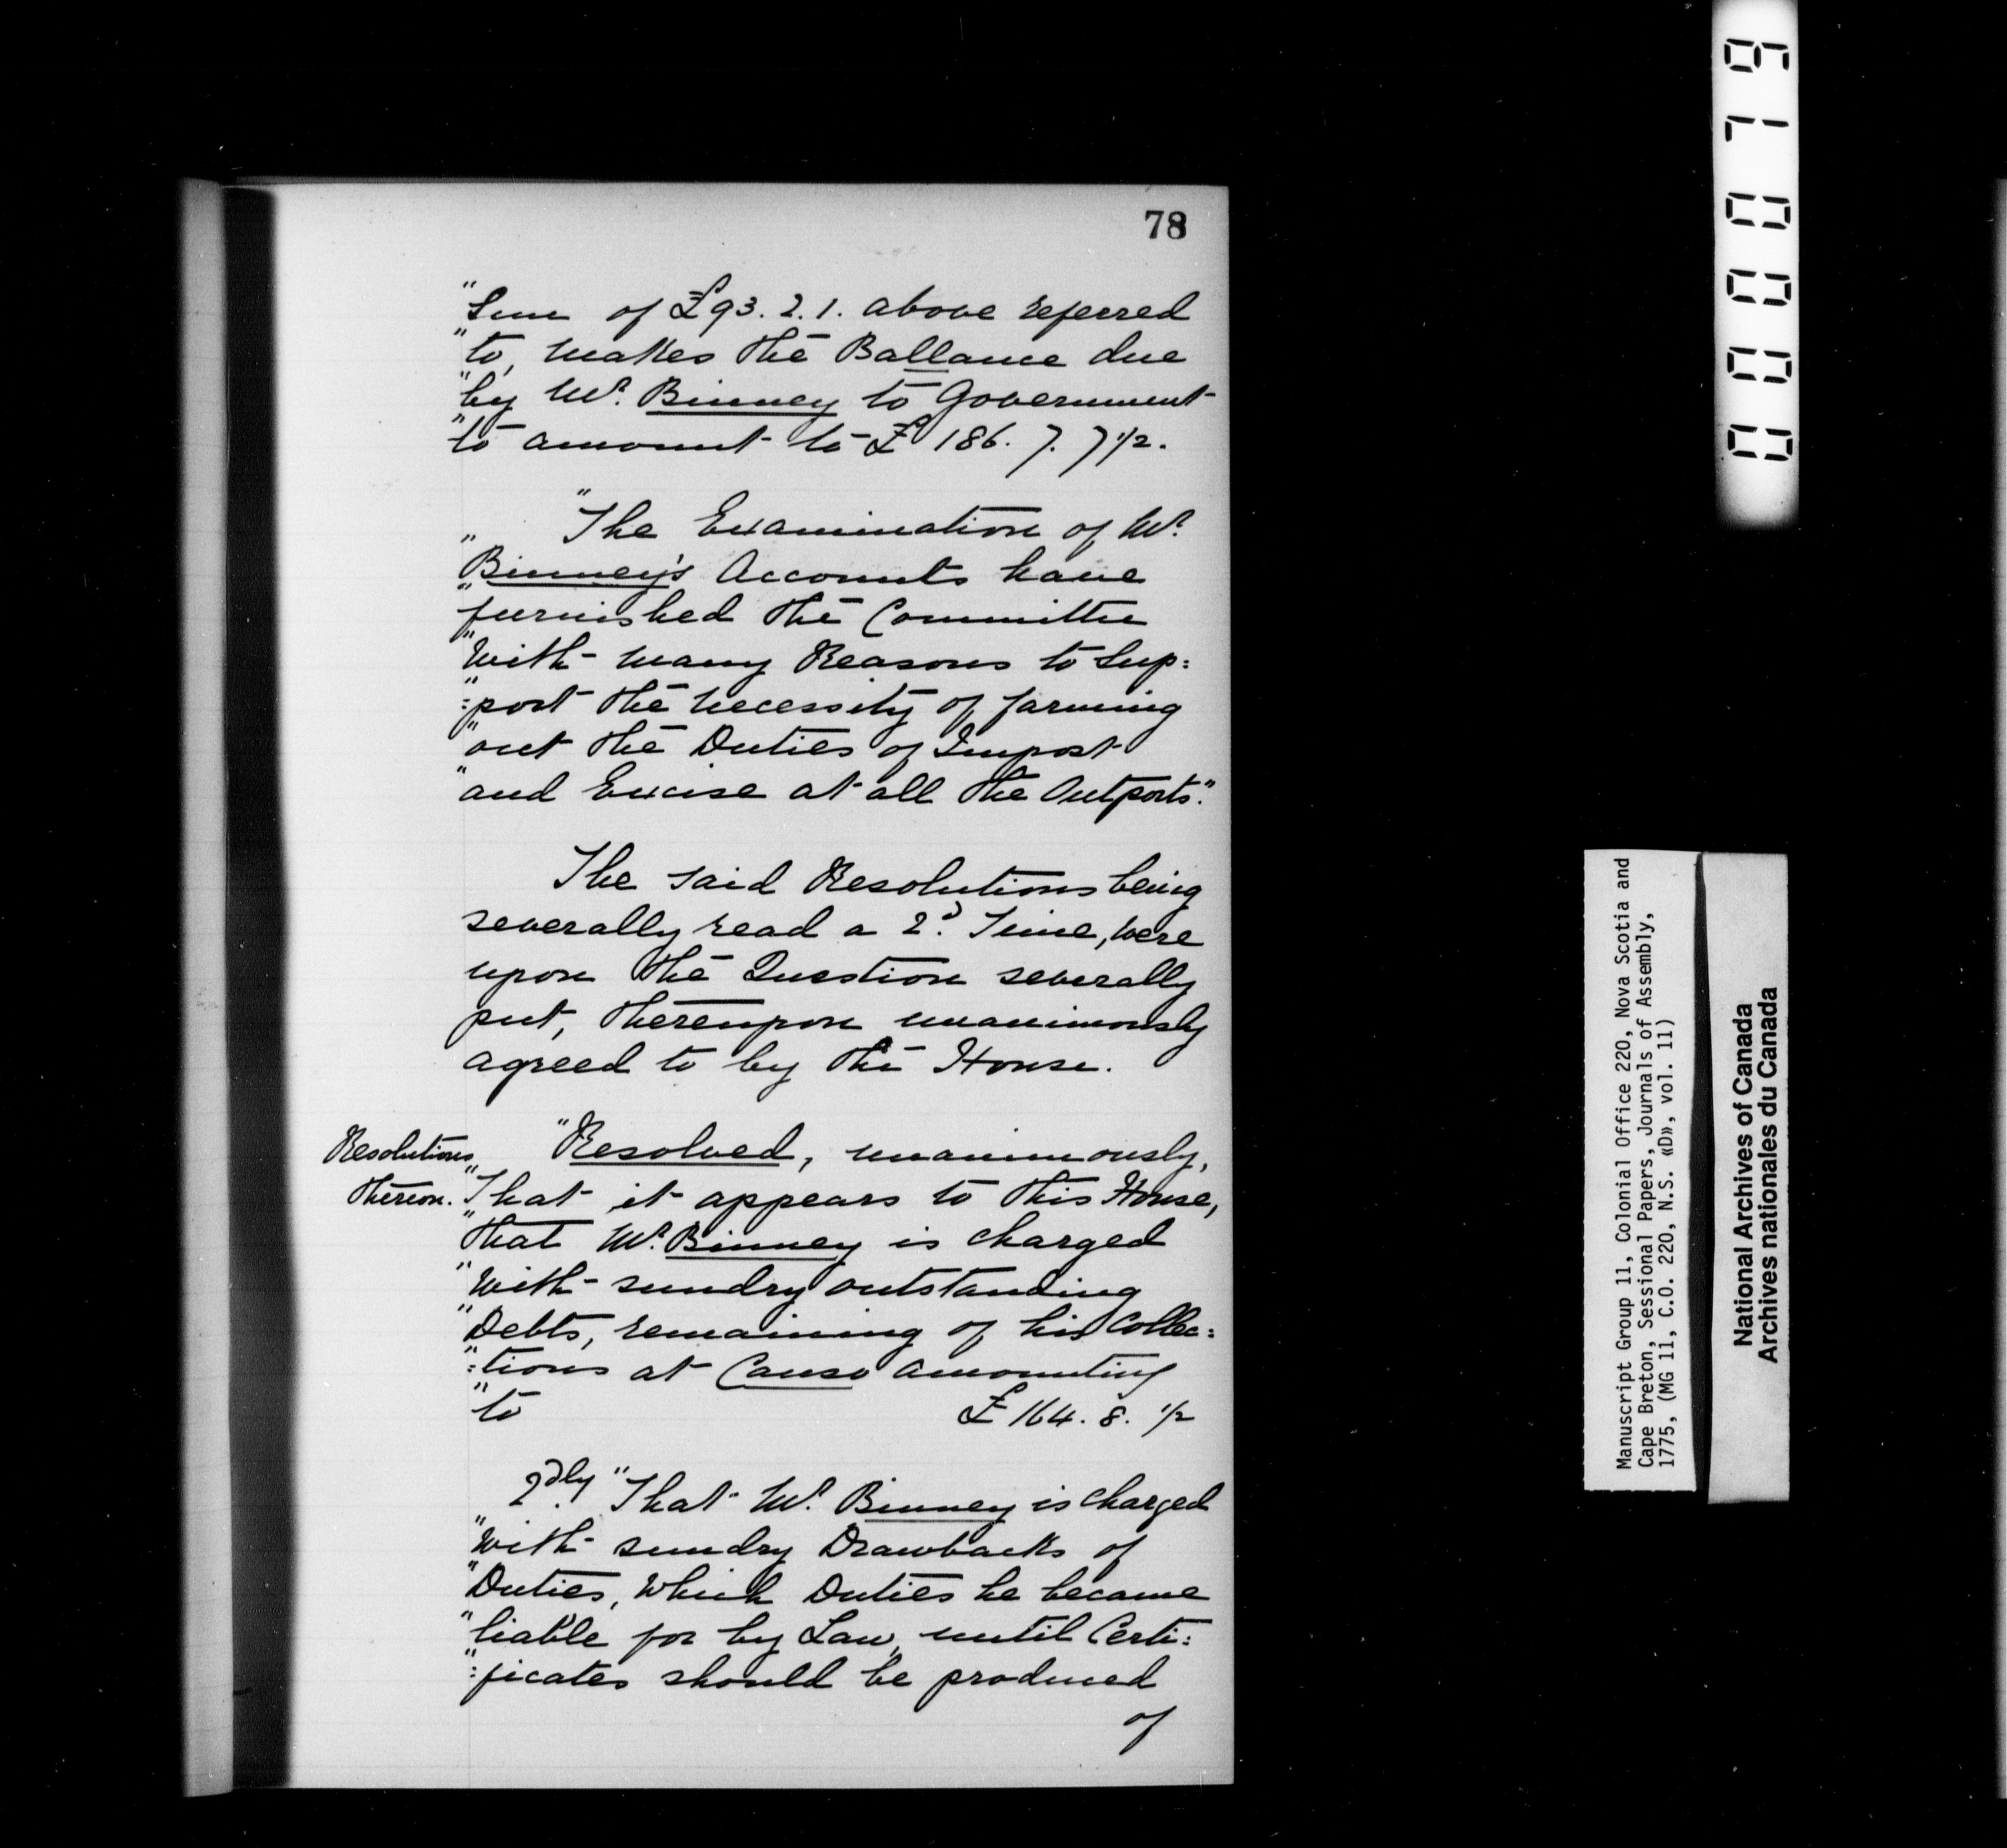 78
"Sum of £93. 2. 1. above referred
"to, makes the Ballance due
"by Mr. Binney to Government
"to amount to £186. 7. 7 1/2.
"The Examination of Mr.
"Binney's Accounts have
"furnished the Committee
"with many Reasons to Sup:
":port the necessity of farming
"out the Duties of Impost
"and Excise at all the Outports."
The said Resolutions being
severally read a 2d. Time, were
upon the Question severally
put, thereupon unanimously
agreed to by the House.
Resolutions
thereon.
"Resolved, unanimously,
"That it appears to this House,
"that Mr. Binney is charged
"with sundry outstanding
"Debts, remaining of his Collec:
":tions at Canso amounting
"to £164. 8. 1/2
2dly. "That Mr. Binney is charged
"with sundry Drawbacks of
"Duties, which Duties he became
"liable for by Law, until Certi:
":ficates should be produced
of
000079
Manuscript Group 11, Colonial Office 220, Nova Scotia and
Cape Breton, Sessional Papers, Journals of Assembly,
1775, (MG 11, C.O. 220, N.S. «D», vol. 11)
National Archives of Canada
Archives nationales du Canada